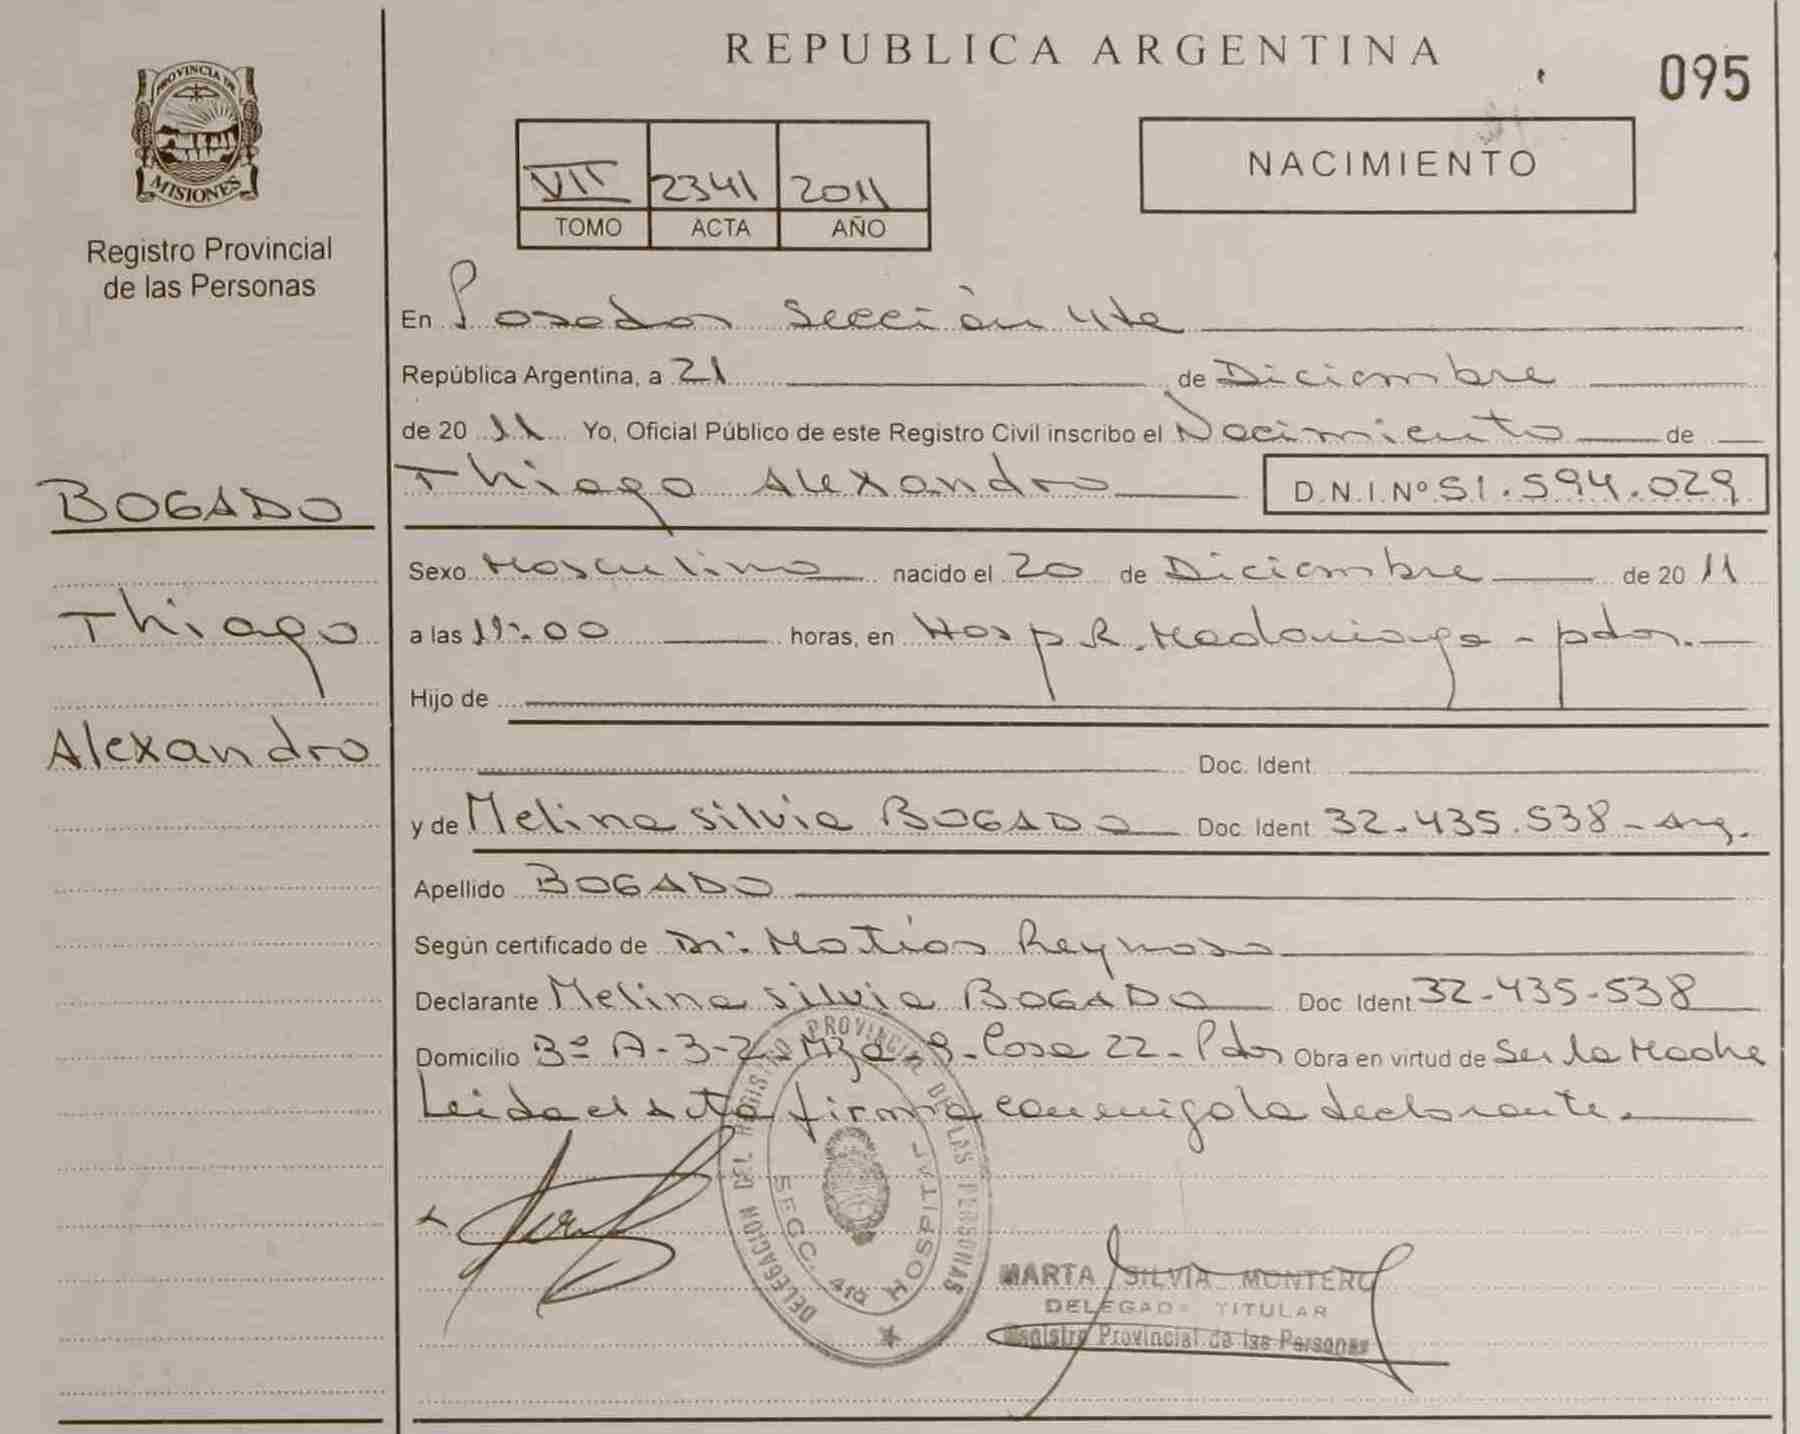 REPUBLICA ARGENTINA
095
PROVINCIA DE
MISIONES
Registro Provincial
de las Personas
VII 2341 2011
TOMO ACTA AÑO
NACIMIENTO
En Posadas Sección 4ta
República Argentina, a 21 de Diciembre
de 20 11 Yo, Oficial Público de este Registro Civil inscribo el Nacimiento de
Thiago Alexandro D.N.I.Nº 51.594.029
BOGADO
Thiago
Alexandro
Sexo Masculino nacido el 20 de Diciembre de 20 11
a las 11:00 horas, en Hosp R. Madariaga - pdas.
Hijo de
Doc. Ident.
y de Melina Silvia BOGADO Doc. Ident 32.435.538 - Arg.
Apellido BOGADO
Según certificado de Dr. Matías Reynoso
Declarante Melina Silvia BOGADO Doc Ident 32-435-538
Domicilio Bº A-3-2 - Mza 9 - Casa 22 - Pdas Obra en virtud de Ser la Madre
Leida el Acta firma conmigo la declarante.
DELEGACION DEL REGISTRO PROVINCIAL DE LAS PERSONAS
SECC. 4ta HOSPITAL
MARTA SILVIA MONTERO
DELEGADA TITULAR
Registro Provincial de las Personas